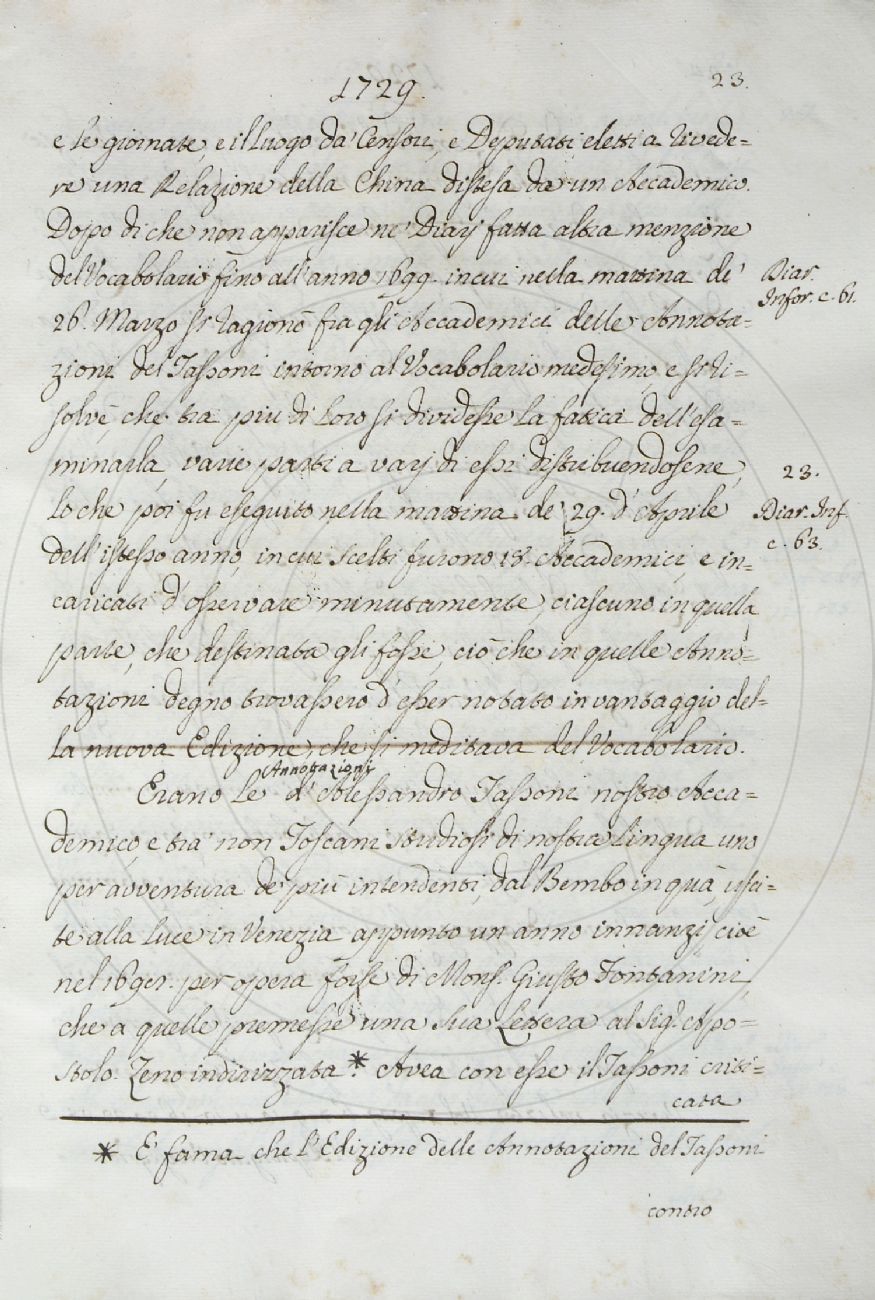 1729.
23.
e le giornate, e il luogo da' Censori, e Deputati eletti a rivede=
re una Relazione della China distesa da un Accademico.
Dopo di che non apparisce ne' Diarj fatta altra menzione
del Vocabolario fino all'anno 1699. in cui nella mattina de'
26. Marzo si ragionò fra gli Accademici delle Annota=
zioni del Tassoni intorno al Vocabolario medesimo, e si ri=
solvè, che tra più di Loro si dividesse la fatica dell'esa=
minarla, varie parti a varj di essi distribuendosene,
lo che poi fu eseguito nella mattina de' 29. d'Aprile
dell'istesso anno, in cui scelti furono 18. Accademici, e in=
caricati d'osservare minutamente, ciascuno in quella
parte, che destinata gli fosse, ciò che in quelle Anno=
tazioni degno trovassero d'esser notato in vantaggio del=
la nuova Edizione, che si meditava del Vocabolario.
Diar.
Infor. c. 61.
23.
Diar. Inf.
c. 63.
Annotazioni
Erano Le d'Alessandro Tassoni nostro Acca=
demico, e tra' non Toscani studiosi di nostra Lingua uno
per avventura de' più intendenti, dal Bembo in quà, usci=
te alla luce in Venezia appunto un anno innanzi, cioè
nel per opera forse di Mons. Giusto Fontanini,
che a quelle premesse una sua Lettera al Sig. Apo=
stolo Zeno indirizzata.* Avea con esse il Tassoni criti=
cata
* È fama che l'Edizione delle Annotazioni del Tassoni
contro